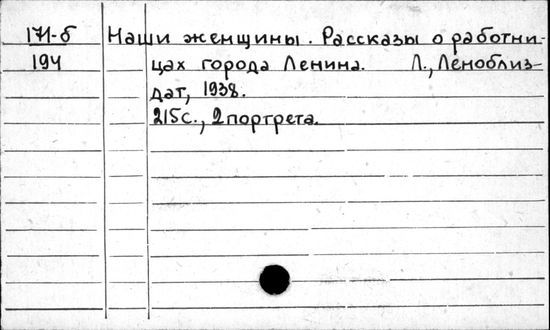 171-б Наши женщины. Рассказы о работни-
194 цах города Ленина. Л., Леноблиз-
дат, 1938.
215с., 2 портрета.